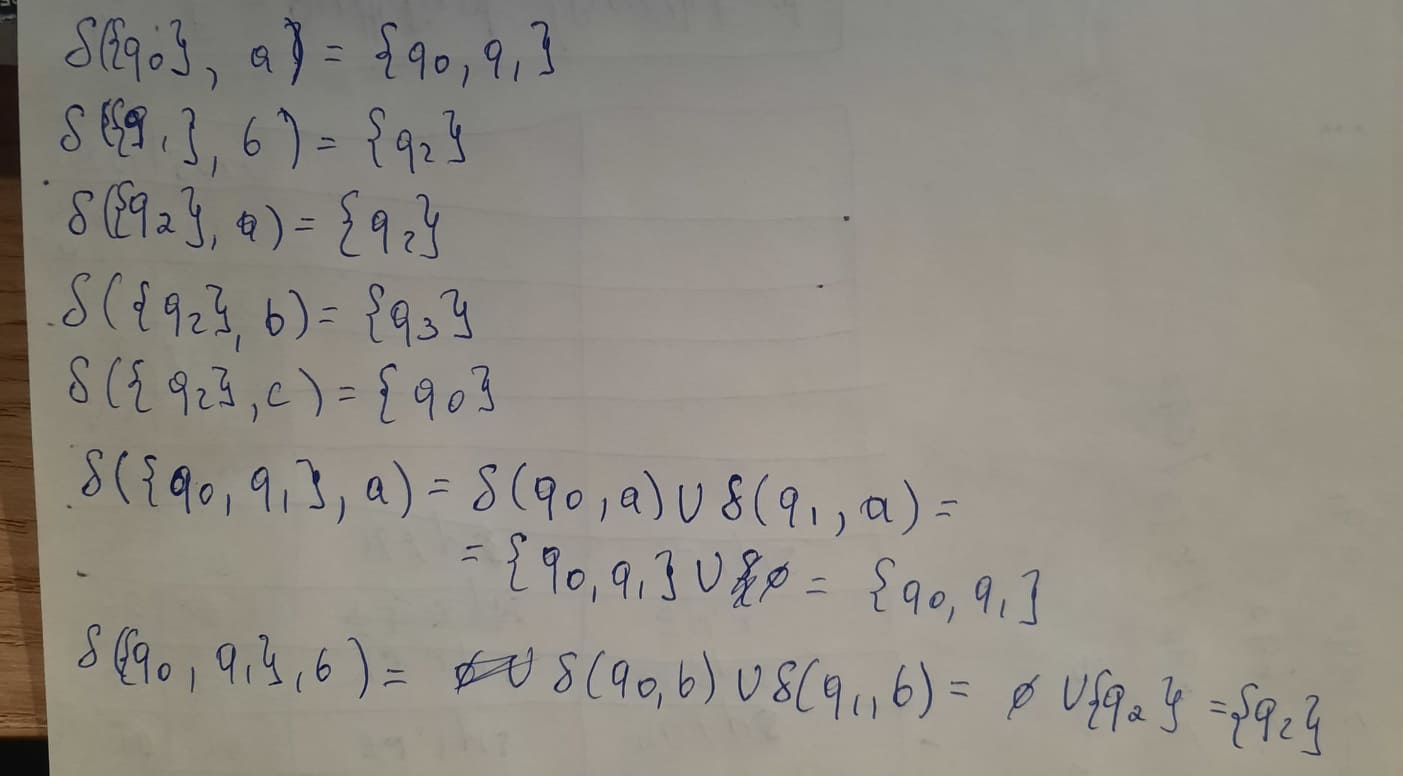 δ({q₀}, a) = {q₀, q₁}
δ({q₁}, b) = {q₂}
δ({q₂}, a) = {q₂}
δ({q₂}, b) = {q₃}
δ({q₂}, c) = {q₀}
δ({q₀, q₁}, a) = δ(q₀, a) ∪ δ(q₁, a) =
= {q₀, q₁} ∪ ∅ = {q₀, q₁}
δ({q₀, q₁}, b) = δ(q₀, b) ∪ δ(q₁, b) = ∅ ∪ {q₂} = {q₂}